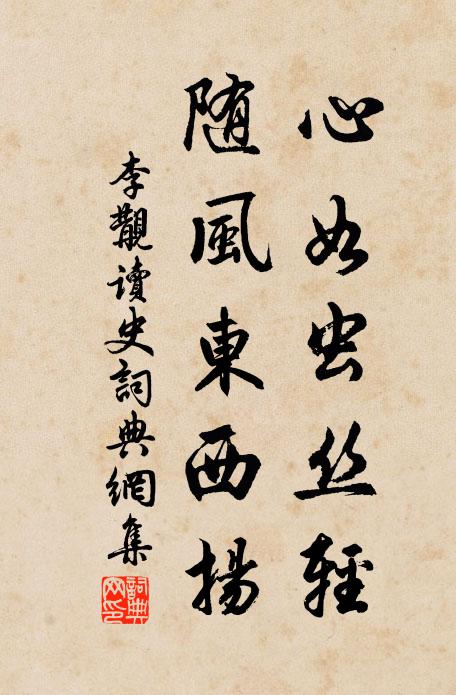 心如虫丝轻
随風東西揚
李覯读史詞典網集
詞典网印